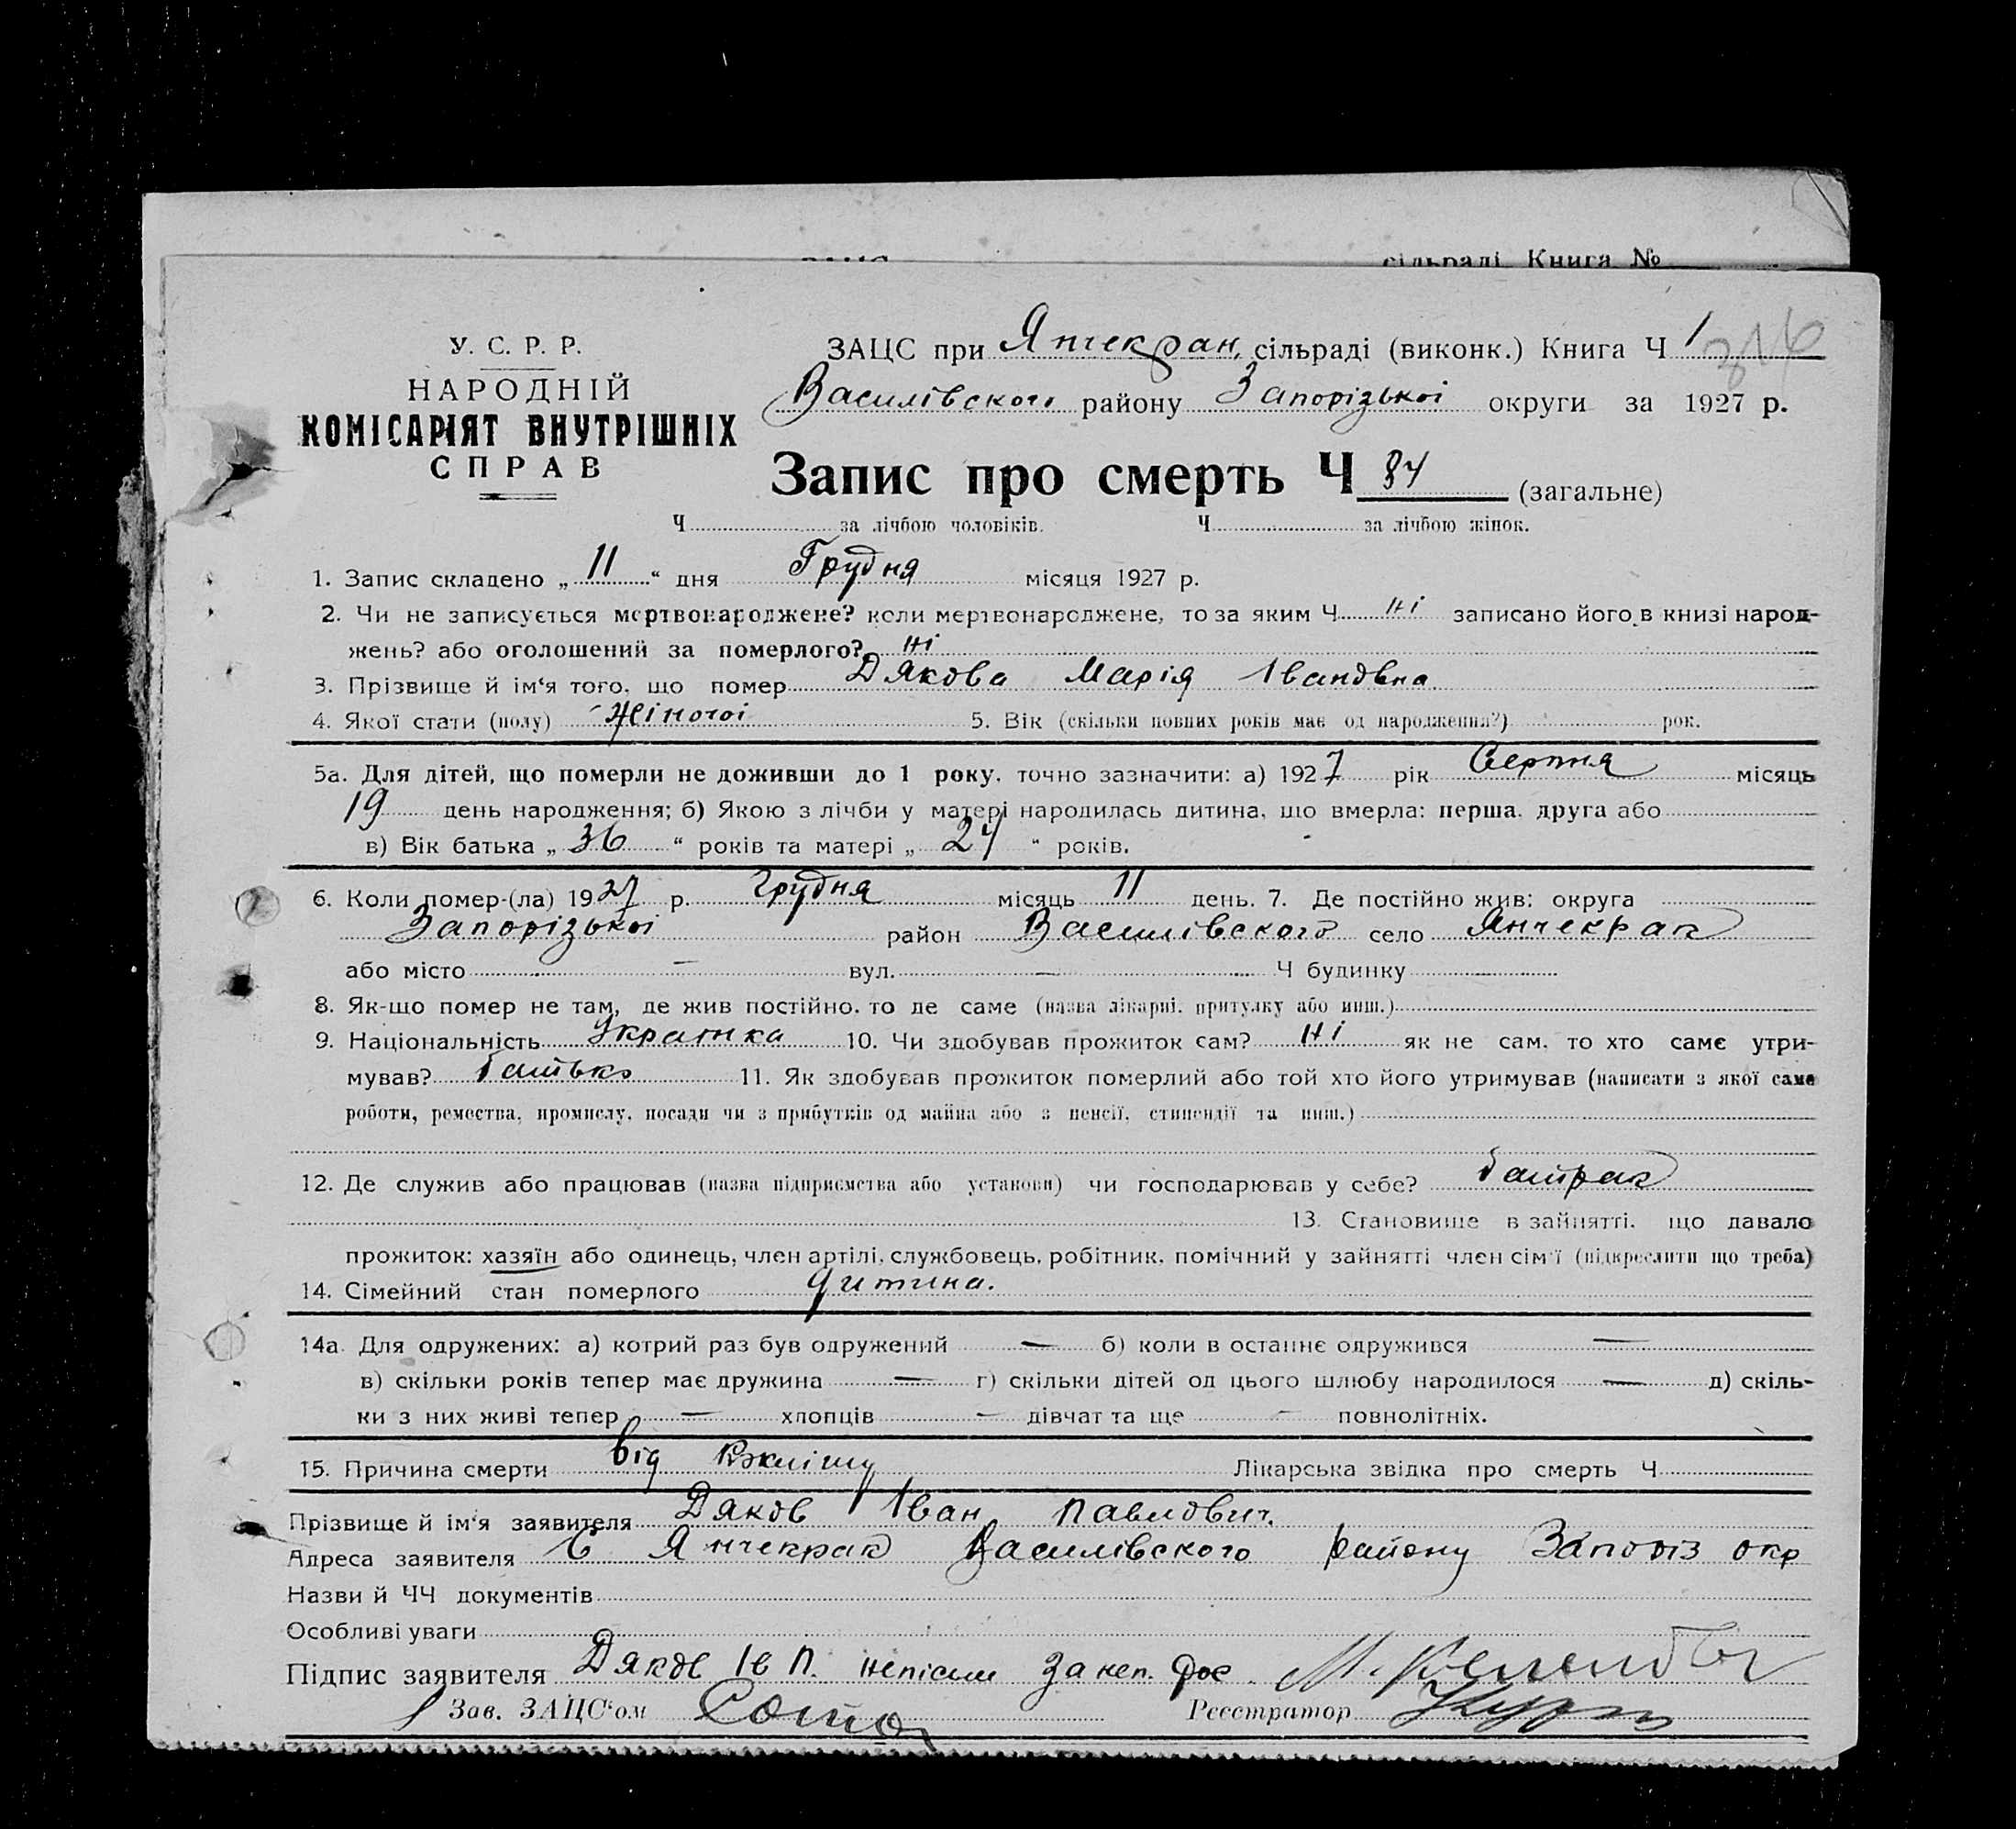 сільраді. Книга №
У. С. Р. Р.
НАРОДНІЙ
КОМІСАРІЯТ ВНУТРІШНІХ
СПРАВ
ЗАЦС при Янчекрак, сільраді (виконк.) Книга Ч 1
Василівского району Запорізької округи за 1927 р.
Запис про смерть Ч 84 (загальне)
Ч за лічбою чоловіків. Ч за лічбою жінок.
1. Запис складено „ 11 “ дня Грудня місяця 1927 р.
2. Чи не записується мертвонароджене? коли мертвонароджене, то за яким Ч ні записано його в книзі народ-
жень? або оголошений за померлого? ні
3. Прізвище й ім‘я того, що помер Дякова Марія Івановна
4. Якої стати (полу) жіночої 5. Вік (скільки повних років має од народження?) рок.
5а. Для дітей, що померли не доживши до 1 року, точно зазначити: а) 1927 рік Серпня місяць
19 день народження; б) Якою з лічби у матері народилась дитина, що вмерла: перша, друга або
в) Вік батька „ 36 “ років та матері „ 24 “ років.
6. Коли помер-(ла) 1927 р. грудня місяць 11 день. 7. Де постійно жив: округа
Запорізької район Василівского село Янчекрак
або місто — вул. — Ч будинку
8. Як-що помер не там, де жив постійно, то де саме (назва лікарні, притулку або инш.)
9. Національність Украінка 10. Чи здобував прожиток сам? ні як не сам, то хто саме утри-
мував? батько 11. Як здобував прожиток померлий або той хто його утримував (написати з якої саме
роботи, ремества, промислу, посади чи з прибутків од майна або з пенсії, стипендії та инш.)
12. Де служив або працював (назва підприємства або установи) чи господарював у себе? батрак
13. Становище в зайнятті, що давало
прожиток: хазяїн або одинець, член артілі, службовець, робітник, помічний у зайнятті член сім‘ї (підкреслити що треба)
14. Сімейний стан померлого дитина.
14а. Для одружених: а) котрий раз був одружений — б) коли в останнє одружився —
в) скільки років тепер має дружина — г) скільки дітей од цього шлюбу народилося — д) скіль-
ки з них живі тепер — хлопців — дівчат та ще — повнолітніх.
15. Причина смерти від Лікарська звідка про смерть Ч
Прізвище й ім‘я заявителя Дяков Іван Павлович.
Адреса заявителя С Янчекрак Василівского району Запоріз окр
Назви й ЧЧ документів
Особливі уваги
Підпис заявителя Дяков Ів П. за неп.
Зав. ЗАЦС‘ом
Реєстратор